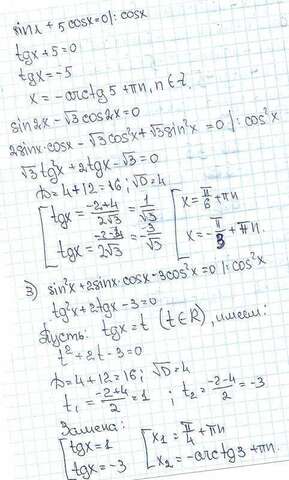 sinx + 5cosx = 0 |: cosx
tgx + 5 = 0
tgx = -5
x = -arctg5 + πn, n∈Z.
sin2x - √3 cos2x = 0
2sinx·cosx - √3cos²x + √3sin²x = 0 |: cos²x
√3 tg²x + 2tgx - √3 = 0
D = 4 + 12 = 16; √D = 4
[ tgx = (-2+4)/(2√3) = 1/√3 [ x = π/6 + πn
[ tgx = (-2-4)/(2√3) = -3/√3 [ x = -π/3 + πn.
3) sin²x + 2sinx·cosx - 3cos²x = 0 |: cos²x
tg²x + 2tgx - 3 = 0
Пусть: tgx = t (t∈R), имеем:
t² + 2t - 3 = 0
D = 4 + 12 = 16; √D = 4
t₁ = (-2+4)/2 = 1 ; t₂ = (-2-4)/2 = -3
Замена:
[ tgx = 1 [ x₁ = π/4 + πn
[ tgx = -3 [ x₂ = -arctg3 + πn.